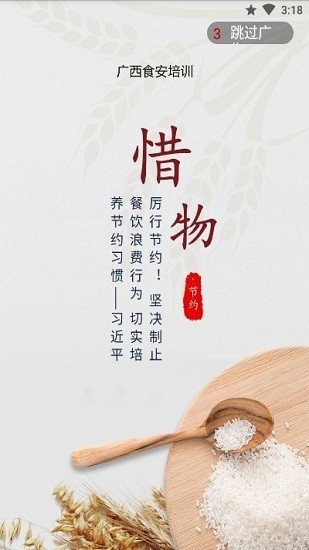 3:18
3 跳过广
广西食安培训
惜物
厉行节约！ 坚决制止
餐饮浪费行为 切实培
养节约习惯——习近平
节约